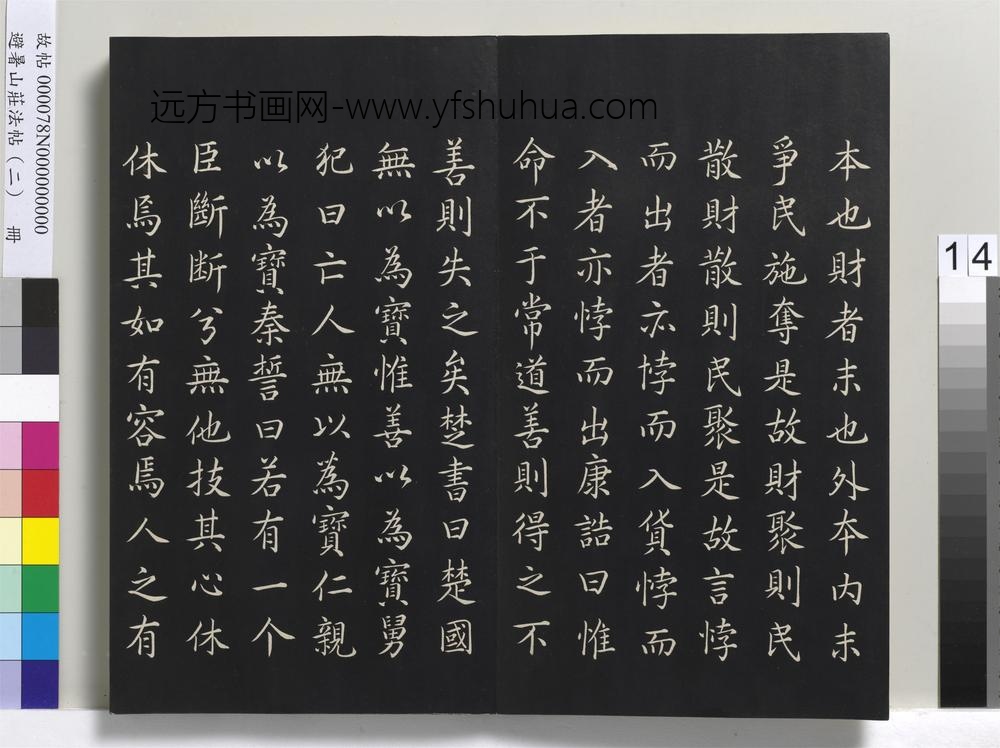 本也財者末也外本內末
爭民施奪是故財聚則民
散財散則民聚是故言悖
而出者亦悖而入貨悖而
入者亦悖而出康誥曰惟
命不于常道善則得之不
善則失之矣楚書曰楚國
無以為寶惟善以為寶舅
犯曰亡人無以為寶仁親
以為寶秦誓曰若有一个
臣斷斷兮無他技其心休
休焉其如有容焉人之有
远方书画网-www.yfshuhua.com
故帖 000078N000000000
避暑山莊法帖（二） 冊
14